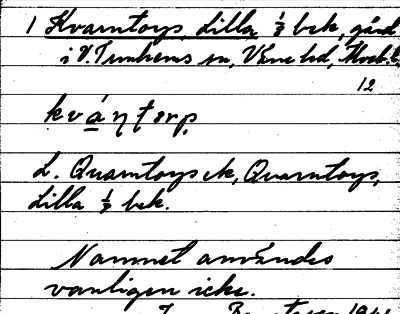 1 Kvarntorp, Lilla 1/8 bek, gård
i V. Tunhems sn, Väne hd,
12
kváṇtorp
L. Quarntorps ek, Quarntorp,
Lilla 1/8 bek.
Namnet användes
vanligen icke.